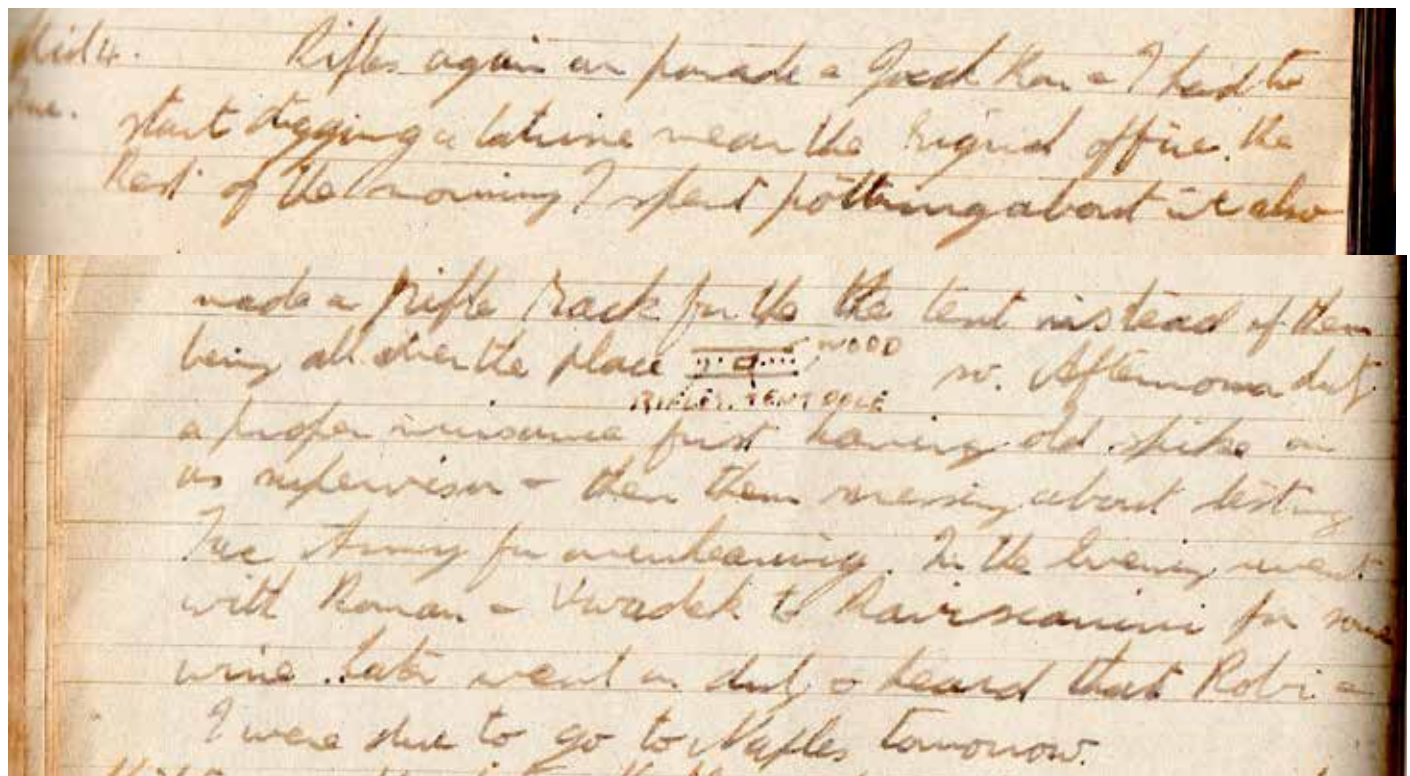 Rifles again on parade & Good Ron & I had to
start digging a latrine near the Signal office. the
Rest of the morning I spent pottering about it also
made a Rifle Rack for the the tent instead of them
being all over the place WOOD so. Afternoon duty
RIFLES. TENT POLE
a proper nuisance first having old spike on
as supervisor - then them messing about testing
Army for overhearing. In the Evening went
with Roman & to for some
wine. Later went on duty & heard that Robi &
I were due to go to Naples tomorrow.